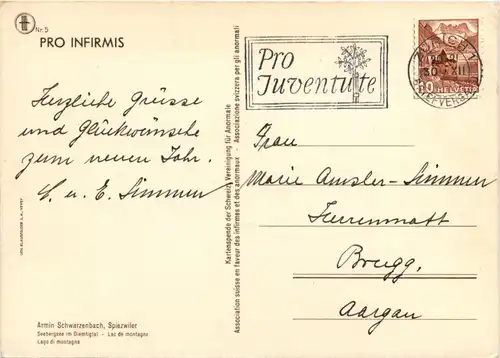 Nr. 5
PRO INFIRMIS
Herzliche Grüsse
und Glückwünsche
zum neuen Jahr.
E. u. E. Simmen
Armin Schwarzenbach, Spiezwiler
Seebergsee im Diemtigtal - Lac de montagne
Lago di montagna
Kartenspende der Schweiz. Vereinigung für Anormale
Association suisse en faveur des infirmes et des anormaux - Associazione svizzera per gli anormali
Pro
Juventute
ZÜRICH 1
30. XII
BRIEFVERSAND
HELVETIA
Frau
Marie Amsler-Simmen
Herrenmatt
Brugg.
Aargau